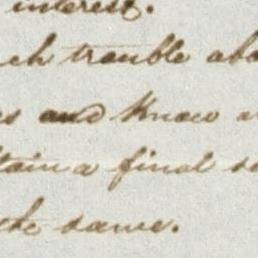 interest.
ch trouble abo
s and know a
tain a final se
the same.